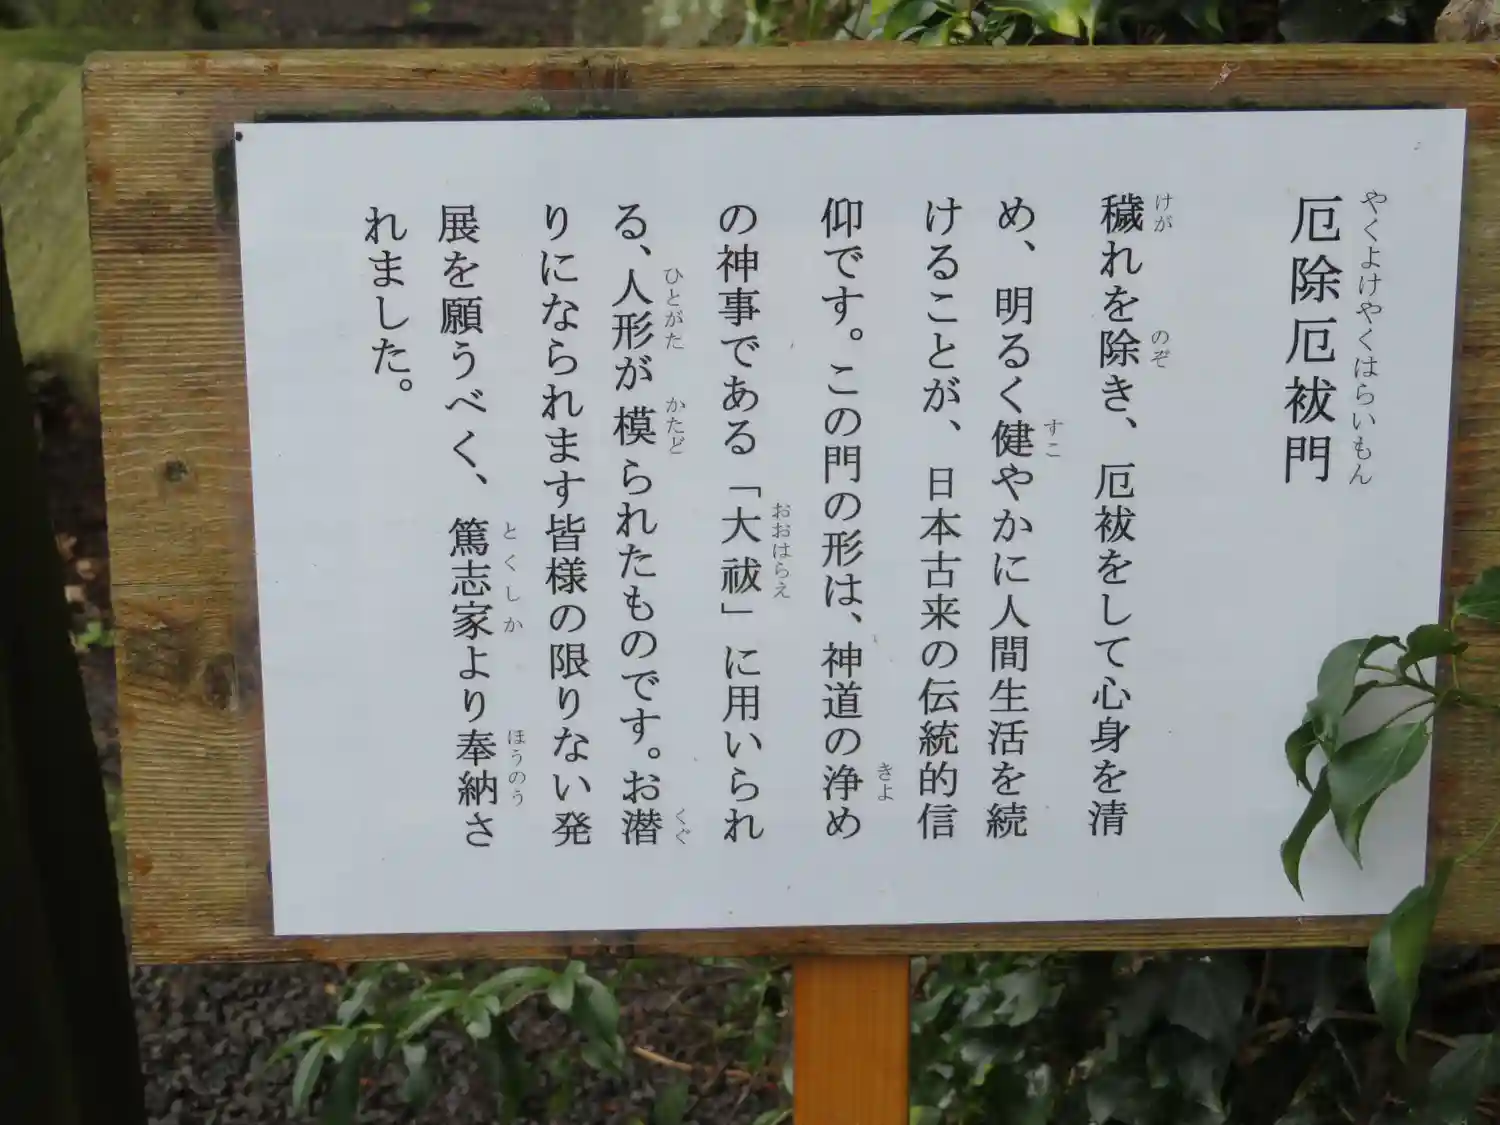 厄除厄祓門
やくよけやくはらいもん
穢れを除き、厄祓をして心身を清
けが
のぞ
め、明るく健やかに人間生活を続
すこ
けることが、日本古来の伝統的信
仰です。この門の形は、神道の浄め
きよ
の神事である「大祓」に用いられ
おおはらえ
る、人形が模られたものです。お潜
ひとがた
かたど
くぐ
りになられます皆様の限りない発
展を願うべく、篤志家より奉納さ
とくしか
ほうのう
れました。